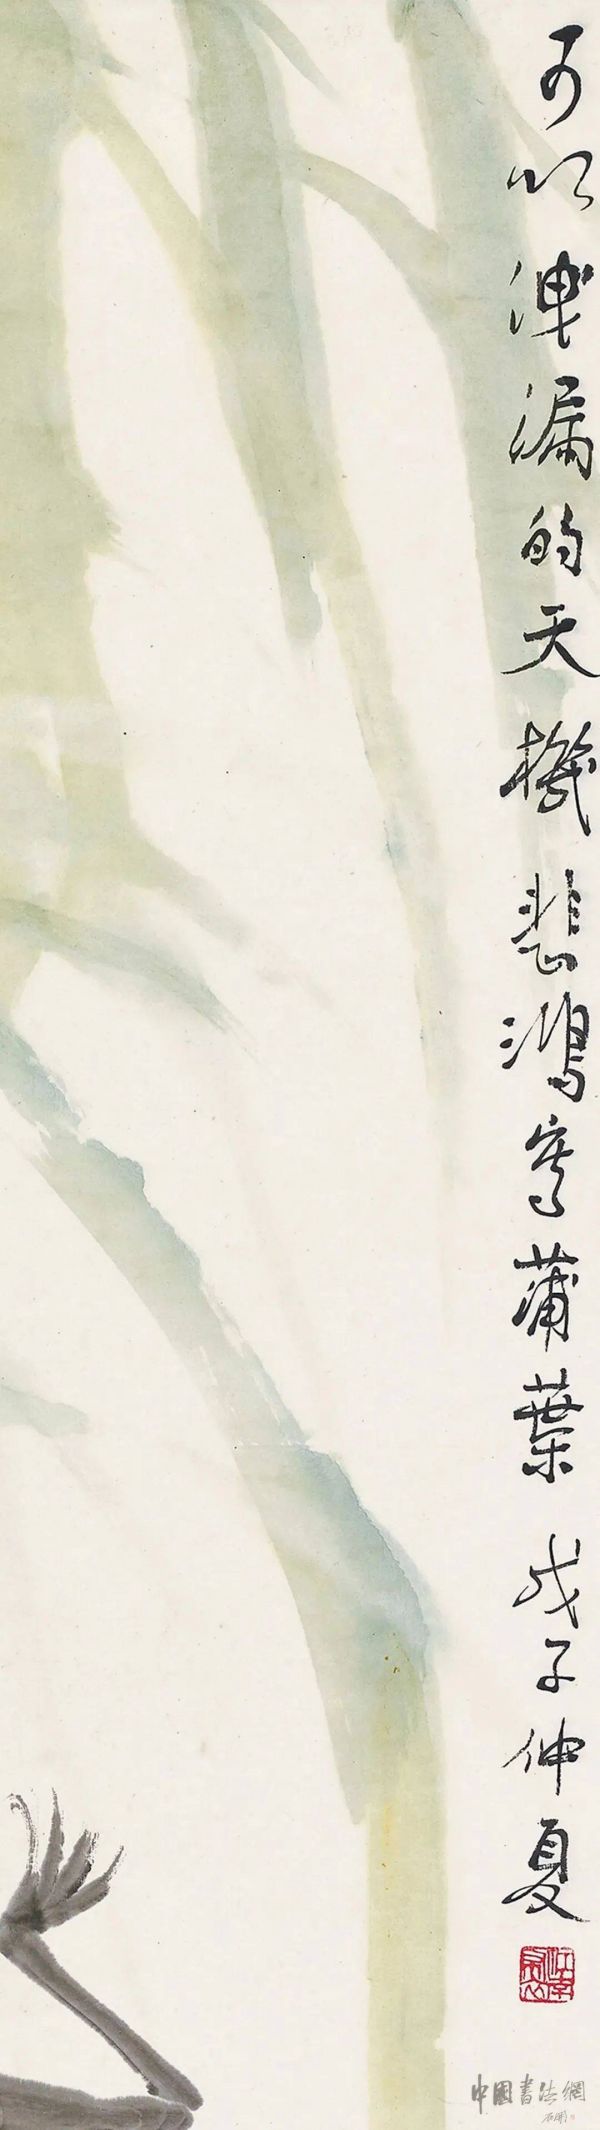 可以洩漏的天機悲鴻寫蒲葉 戊子仲夏
中國書法網